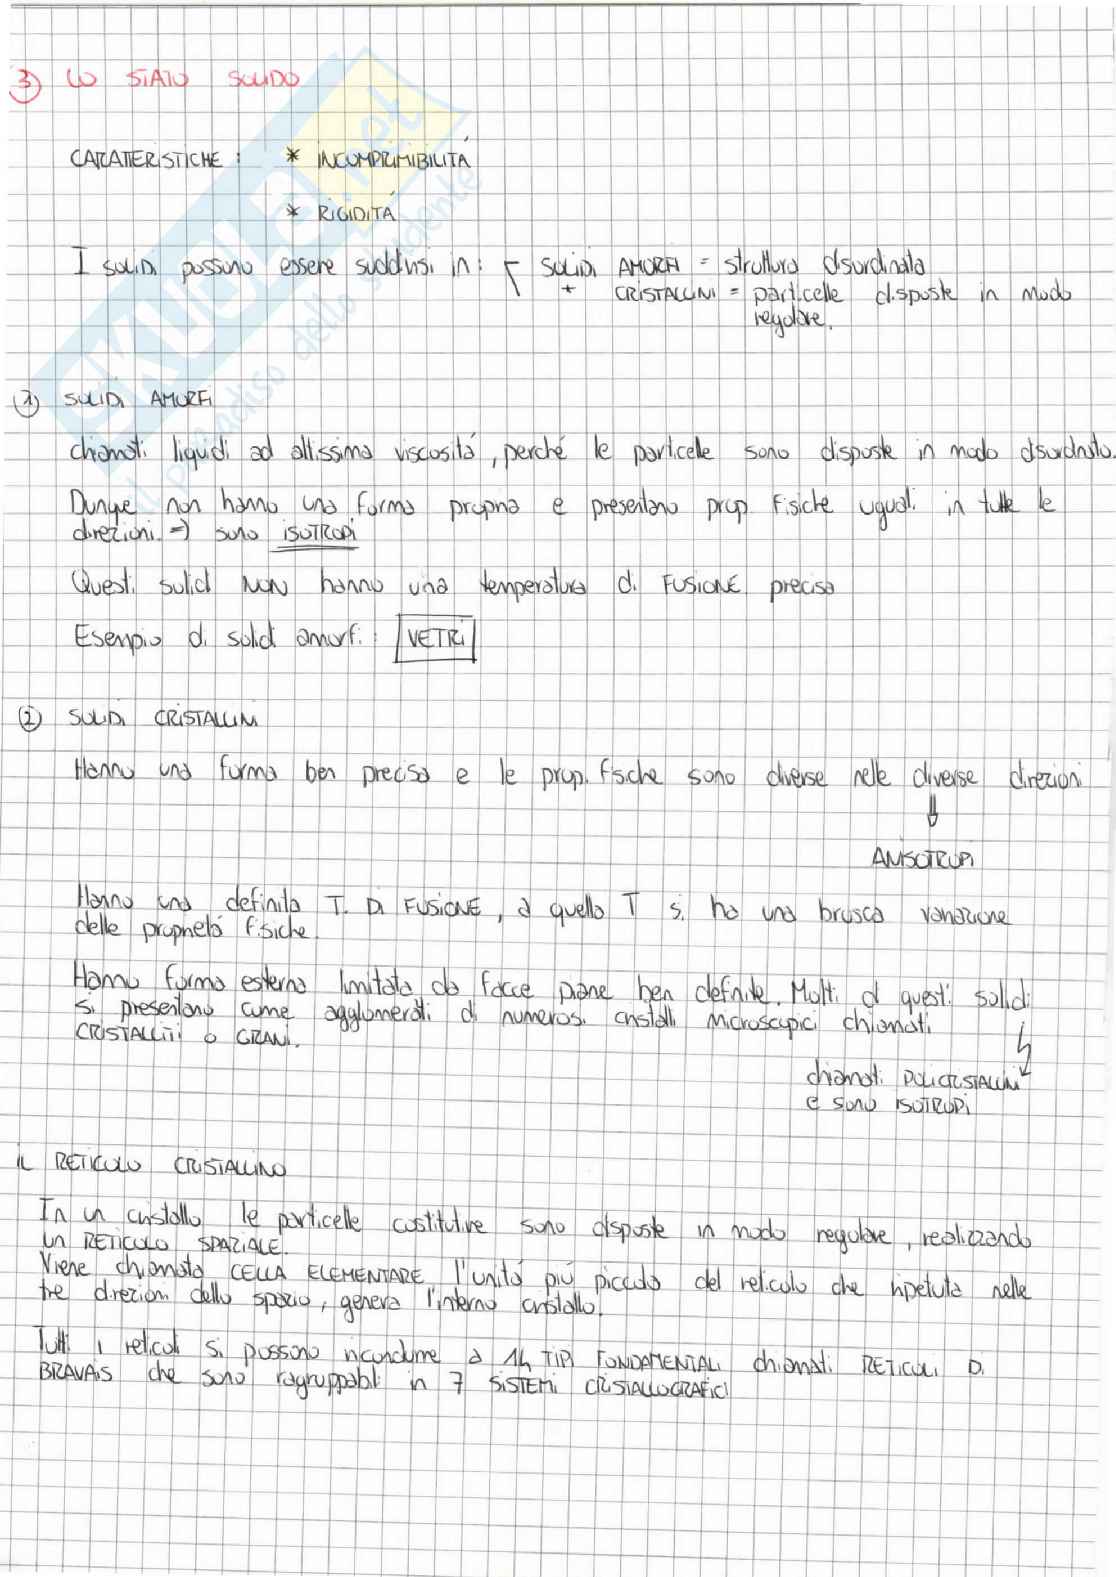 ③ LO STATO SOLIDO
CARATTERISTICHE : * INCOMPRIMIBILITÁ
* RIGIDITÁ
I SOLIDI possono essere suddivisi in : SOLIDI AMORFI = struttura disordinata
+ CRISTALLINI = particelle disposte in modo
regolare.
① SOLIDI AMORFI
chiamati liquidi ad altissima viscositá, perché le particelle sono disposte in modo disordinato.
Dunque non hanno una forma propria e presentano prop fisiche uguali in tutte le
direzioni. => sono ISOTROPI
Questi solidi NON hanno una temperatura di FUSIONE precisa
Esempio di solidi amorfi : VETRI
② SOLIDI CRISTALLINI
Hanno una forma ben precisa e le prop. fisiche sono diverse nelle diverse direzioni
⇓
ANISOTROPI
Hanno una definita T. DI FUSIONE, a quella T si ha una brusca variazione
delle proprietá fisiche.
Hanno forma esterna limitata da facce piane ben definite. Molti di questi solidi
si presentano come agglomerati di numerosi cristalli microscopici chiamati
CRISTALLITI O GRANI.
chiamati POLICRISTALLINI
e sono ISOTROPI
IL RETICOLO CRISTALLINO
In un cristallo le particelle costitutive sono disposte in modo regolare, realizzando
un RETICOLO SPAZIALE.
Viene chiamata CELLA ELEMENTARE l'unitá piú piccola del reticolo che ripetuta nelle
tre direzioni dello spazio, genera l'interno cristallo.
Tutti i reticoli si possono ricondurre a 14 TIPI FONDAMENTALI chiamati RETICOLI DI
BRAVAIS che sono ragruppabili in 7 SISTEMI CRISTALLOGRAFICI
SKUOLA.net
il paradiso dello studente